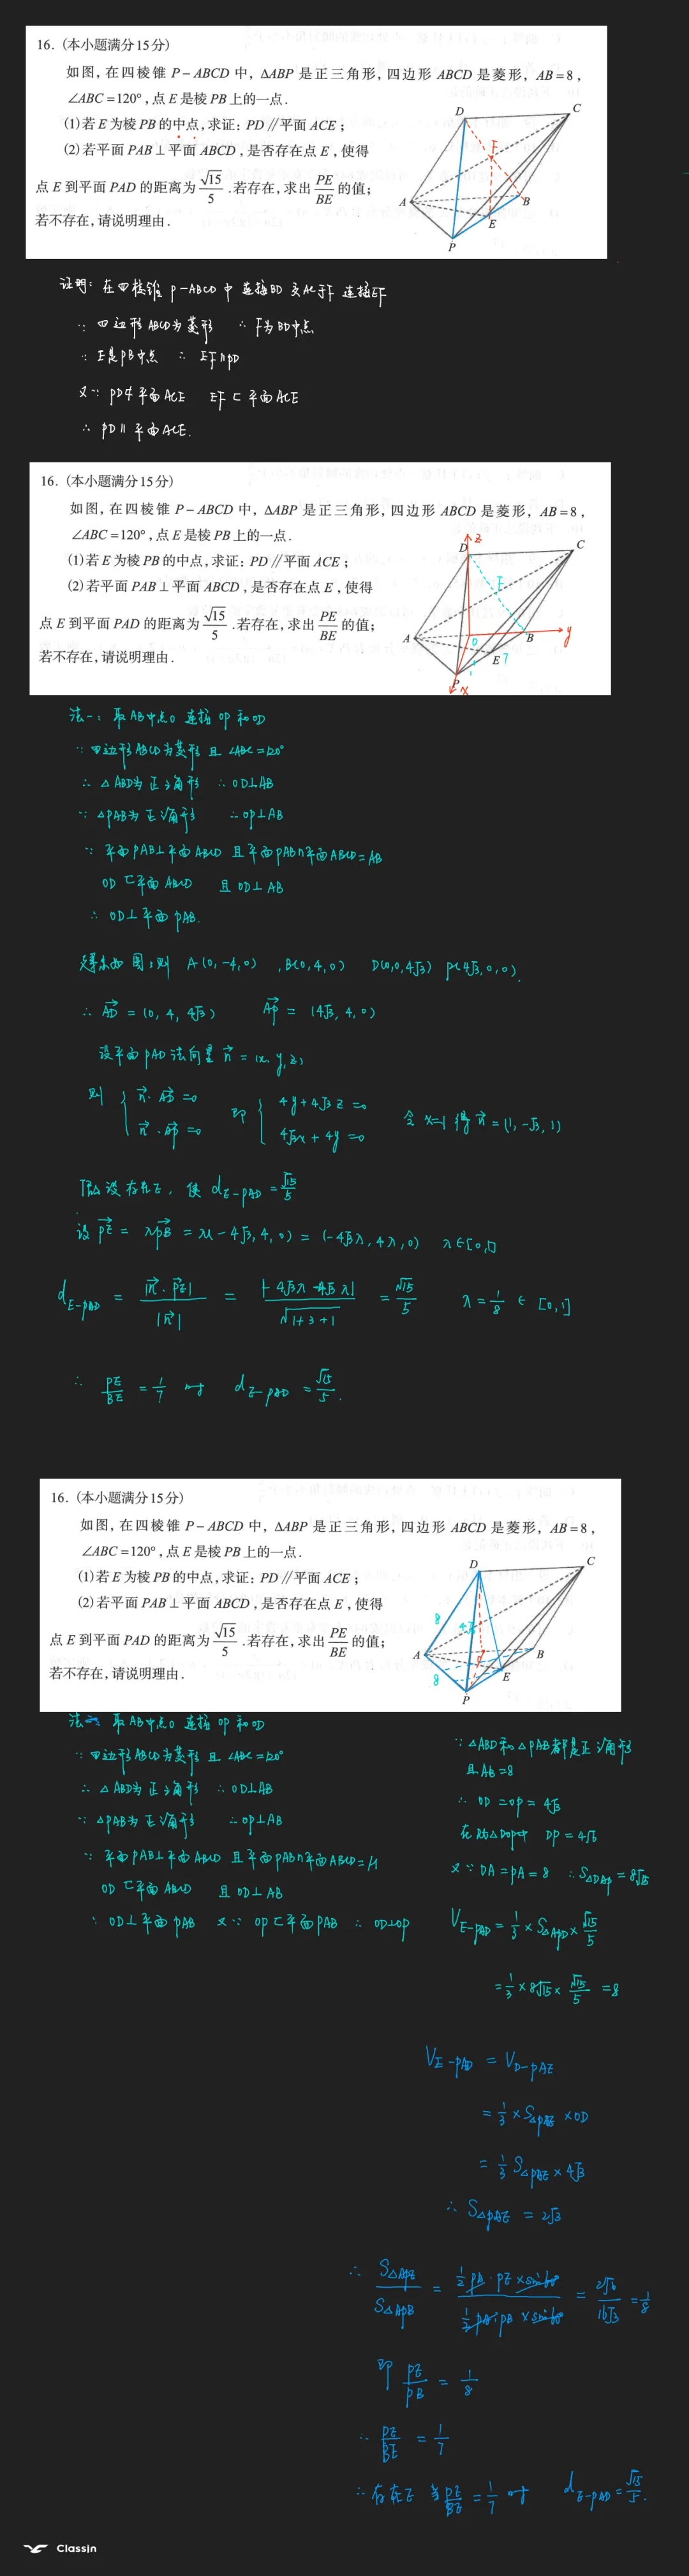 16. (本小题满分15分)
如图,在四棱锥 P-ABCD 中, ΔABP 是正三角形,四边形 ABCD 是菱形, AB=8,
∠ABC=120°,点 E 是棱 PB 上的一点.
(1)若 E 为棱 PB 的中点,求证: PD∥平面 ACE;
(2)若平面 PAB⊥平面 ABCD,是否存在点 E,使得
点 E 到平面 PAD 的距离为 √15/5 .若存在,求出 PE/BE 的值;
若不存在,请说明理由.
D
C
F
A
B
E
P
证明: 在四棱锥 P-ABCD 中 连接BD 交AC于F 连接EF
∵ 四边形ABCD为菱形 ∴ F为BD中点
∵ E是PB中点 ∴ EF∥PD
又∵ PD⊄平面ACE EF⊂平面ACE
∴ PD∥平面ACE.
16. (本小题满分15分)
如图,在四棱锥 P-ABCD 中, ΔABP 是正三角形,四边形 ABCD 是菱形, AB=8,
∠ABC=120°,点 E 是棱 PB 上的一点.
(1)若 E 为棱 PB 的中点,求证: PD∥平面 ACE;
(2)若平面 PAB⊥平面 ABCD,是否存在点 E,使得
点 E 到平面 PAD 的距离为 √15/5 .若存在,求出 PE/BE 的值;
若不存在,请说明理由.
z
D
C
F
A
O
B
y
E
7
1
P
x
法一: 取AB中点O 连接OP和OD
∵ 四边形ABCD为菱形且∠ABC=120°
∴ △ABD为正三角形 ∴ OD⊥AB
∵ △PAB为正三角形 ∴ OP⊥AB
∵ 平面PAB⊥平面ABCD 且平面PAB∩平面ABCD=AB
OD⊂平面ABCD 且OD⊥AB
∴ OD⊥平面PAB.
建系如图:则 A(0,-4,0) ,B(0,4,0) D(0,0,4√3) P(4√3,0,0).
∴ AD→ = (0, 4, 4√3) AP→ = (4√3, 4, 0)
设平面PAD法向量 n→ = (x, y, z)
则 { n→·AD→ = 0 n→·AP→ = 0 即 { 4y+4√3z=0 4√3x+4y=0 令x=1 得n→=(1,-√3,1)
假设存在E, 使 d_{E-PAD} = √15/5
设 PE→ = λPB→ = λ(-4√3,4,0) = (-4√3λ,4λ,0) λ∈[0,1]
d_{E-PAD} = |n→·PE→|/|n→| = |-4√3λ-4√3λ|/√(1+3+1) = √15/5 λ=1/8 ∈ [0,1]
∴ PE/BE = 1/7 时 d_{E-PAD} = √15/5.
16. (本小题满分15分)
如图,在四棱锥 P-ABCD 中, ΔABP 是正三角形,四边形 ABCD 是菱形, AB=8,
∠ABC=120°,点 E 是棱 PB 上的一点.
(1)若 E 为棱 PB 的中点,求证: PD∥平面 ACE;
(2)若平面 PAB⊥平面 ABCD,是否存在点 E,使得
点 E 到平面 PAD 的距离为 √15/5 .若存在,求出 PE/BE 的值;
若不存在,请说明理由.
D
C
8
4√3
A
O
B
8
E
P
法二: 取AB中点O 连接OP和OD
∵ 四边形ABCD为菱形且∠ABC=120°
∴ △ABD为正三角形 ∴ OD⊥AB
∵ △PAB为正三角形 ∴ OP⊥AB
∵ 平面PAB⊥平面ABCD 且平面PAB∩平面ABCD=
OD⊂平面ABCD 且OD⊥AB
∴ OD⊥平面PAB 又∵ OP⊂平面PAB ∴ OD⊥OP
∵ △ABD和△PAB都是正三角形
且AB=8
∴ OD=OP=4√3
在Rt△DOP中 DP=4√6
又∵ DA=PA=8 ∴ S△DAP=8√15
V_{E-PAD} = 1/3 × S△APD × √15/5
= 1/3 × 8√15 × √15/5 = 8
V_{E-PAD} = V_{D-PAE}
= 1/3 × S△PAE × OD
= 1/3 S△PAE × 4√3
∴ S△PAE = 2√3
∴ S△APE/S△APB = (1/2 PA·PE×sin60°)/(1/2 PA·PB×sin60°) = 2√3/16√3 = 1/8
即 PE/PB = 1/8
∴ PE/BE = 1/7
∴ 存在E 当PE/BE = 1/7 时 d_{E-PAD} = √15/5.
ClassIn